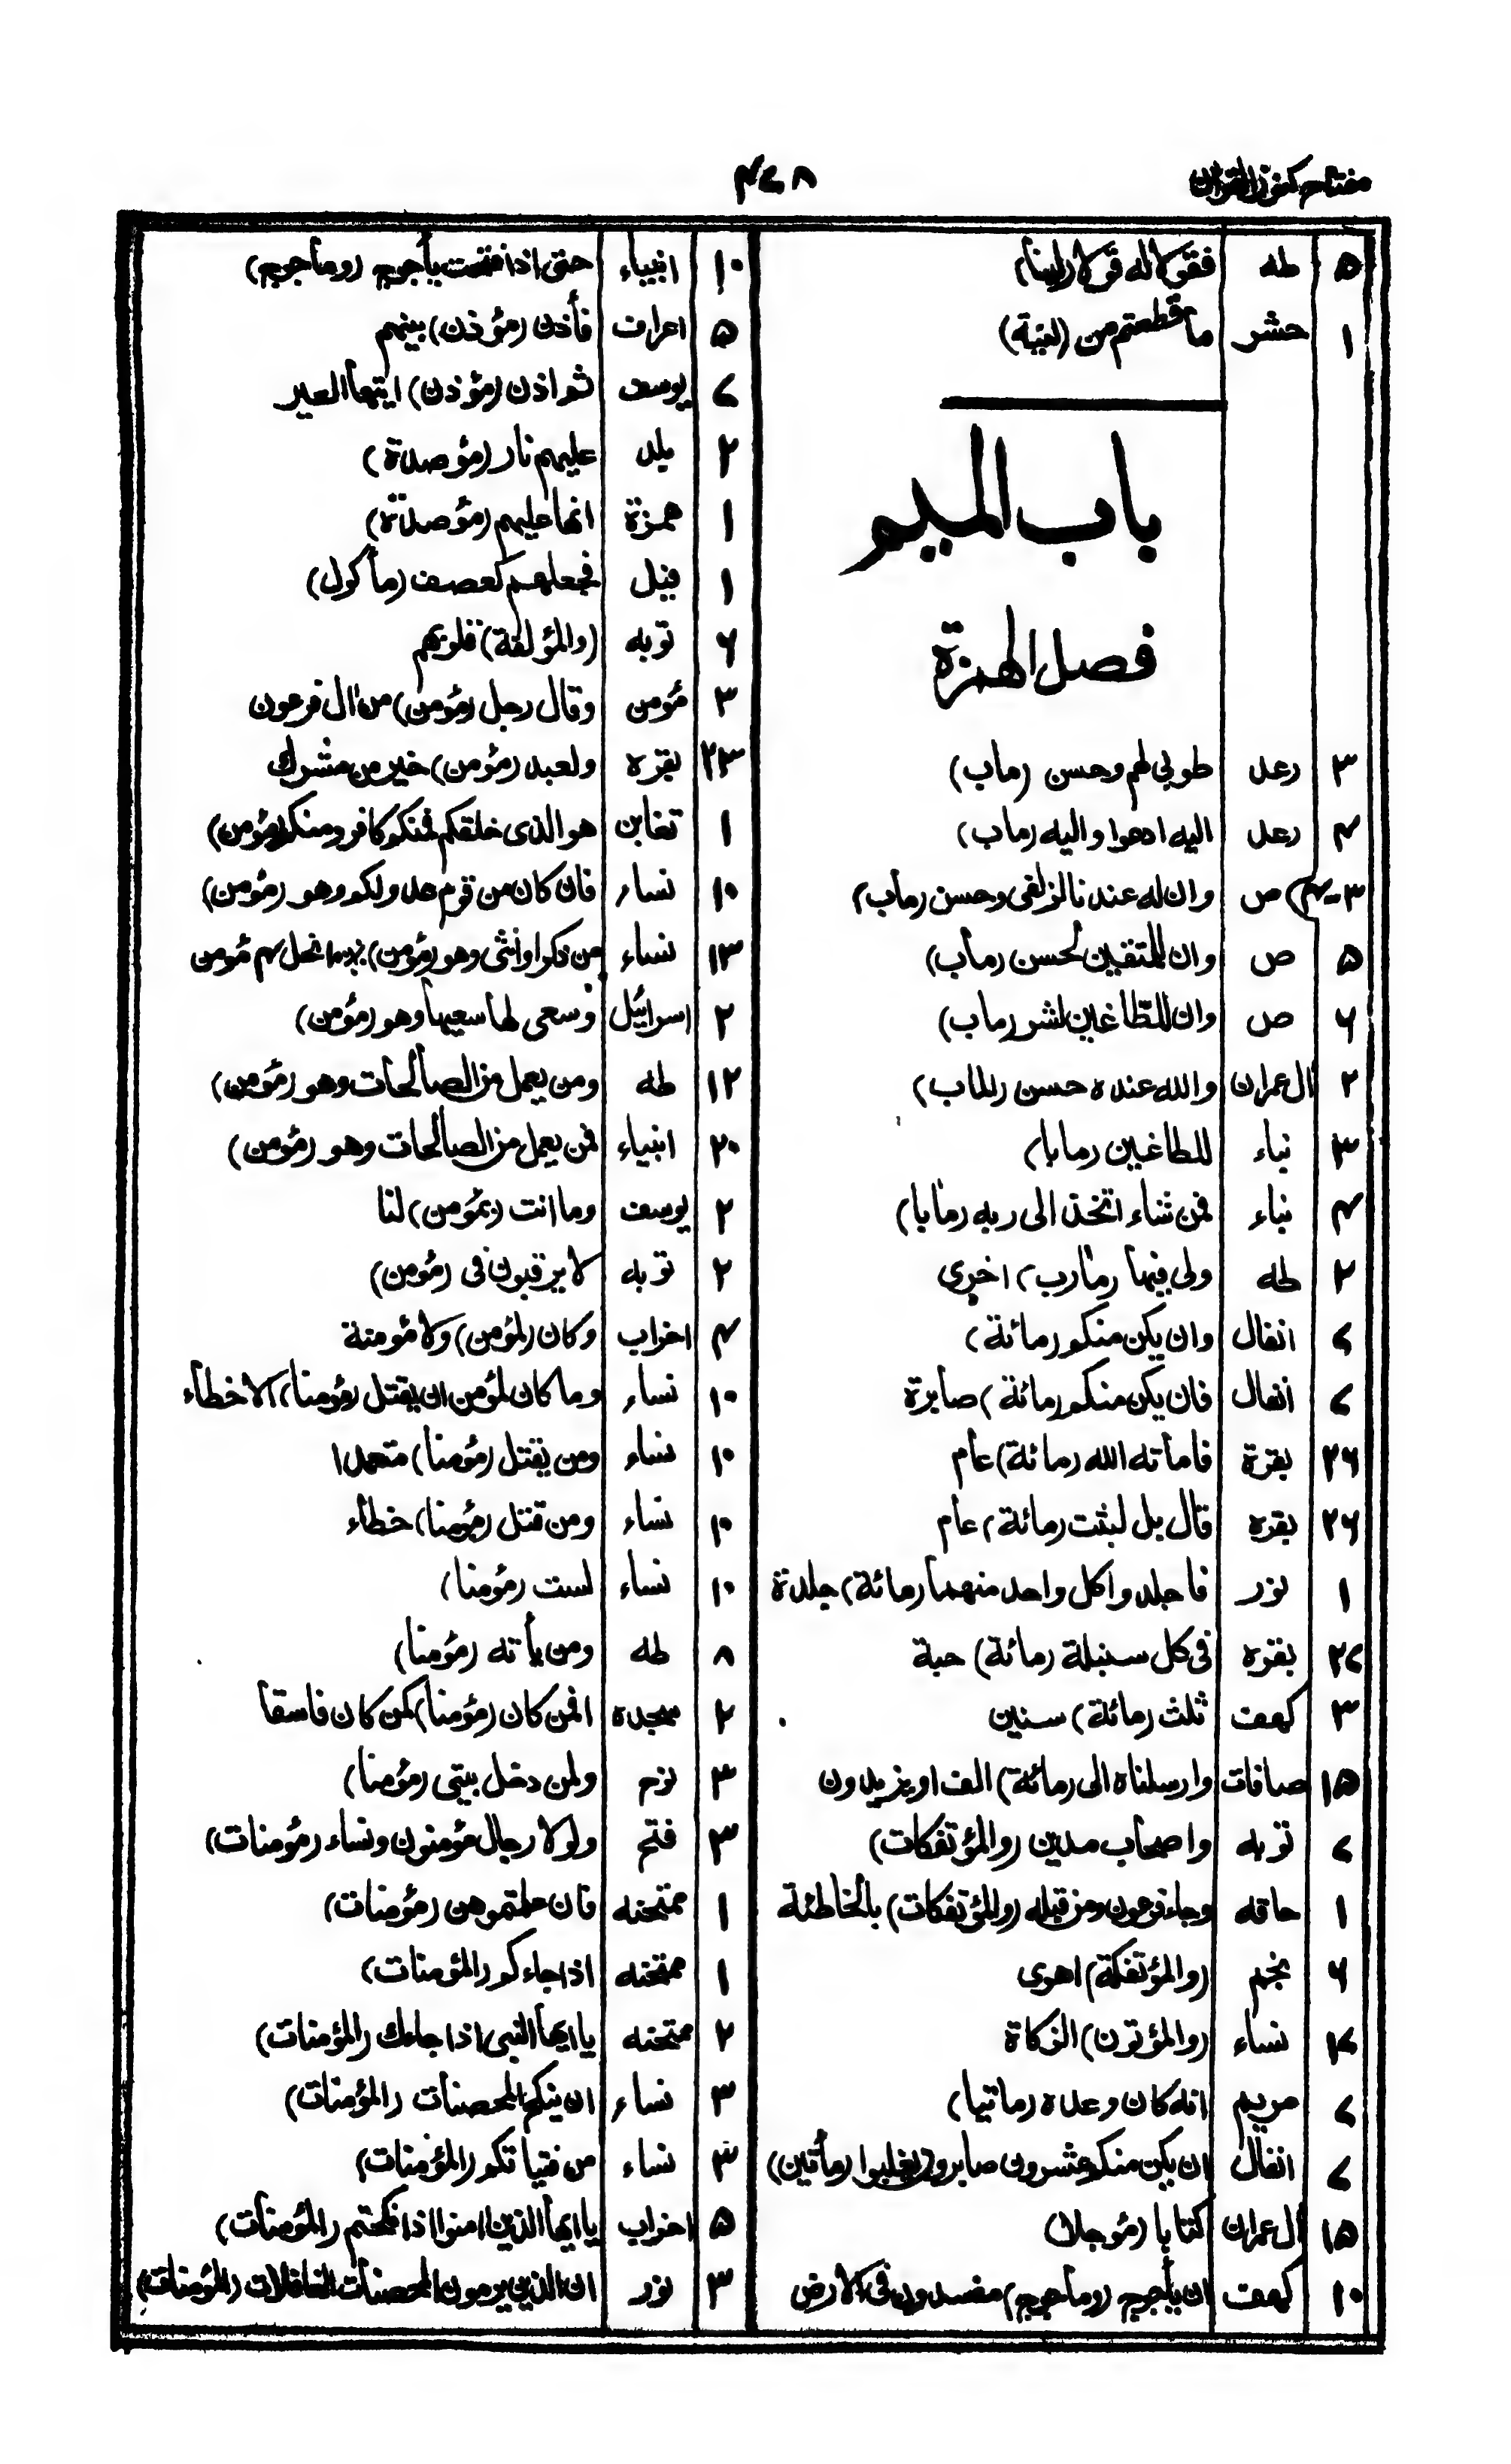 مفتاح كنوز القران
۴۷۸
۵ طه فقولا له قولا (لينا)
۱ حشر ما قطعتم من (لينة)
باب الميم
فصل الهمزة
۳ رعد طوبى لهم وحسن (ماب)
۴ رعد اليه ادعوا واليه (ماب)
۳-۴ ص وان له عندنا لزلفى وحسن (ماب)
۵ ص وان للمتقين لحسن (ماب)
۶ ص وان للطاغين لشر (ماب)
۲ ال عمران والله عنده حسن (الماب)
۳ نباء للطاغين (مابا)
۴ نباء فمن شاء اتخذ الى ربه (مابا)
۲ طه ولى فيها (مارب) اخرى
۷ انفال وان يكن منكم (مائة)
۷ انفال فان يكن منكم (مائة) صابرة
۲۶ بقرة فاماته الله (مائة) عام
۲۶ بقره قال بل لبثت (مائة) عام
۱ نور فاجلدوا كل واحد منهما (مائة) جلدة
۲۷ بقره فى كل سنبلة (مائة) حبة
۳ كهف ثلث (مائة) سنين
۱۵ صافات وارسلناه الى (مائة) الف او يزيدون
۷ توبه واصحاب مدين (والمؤتفكات)
۱ حاقه وجاء فرعون ومن قبله (والمؤتفكات) بالخاطئة
۶ نجم (والمؤتفكة) اهوى
۱۷ نساء (والمؤتون) الزكاة
۷ مريم انه كان وعده (ماتيا)
۷ انفال ان يكن منكم عشرون صابرون يغلبوا (مأتين)
۱۵ ال عمران كتابا (مؤجلا)
۱۰ كهف ان يأجوج (ومأجوج) مفسدون فى الارض
۱۰ انبياء حتى اذا فتحت يأجوج (ومأجوج)
۵ اعراف فأذن (مؤذن) بينهم
۷ يوسف ثم اذن (مؤذن) ايتها العير
۲ بلد عليهم نار (مؤصدة)
۱ همزة انها عليهم (مؤصدة)
۱ فيل فجعلهم كعصف (مأكول)
۶ توبه (والمؤلفة) قلوبهم
۳ مؤمن وقال رجل (مؤمن) من ال فرعون
۲۳ بقره ولعبد (مؤمن) خير من مشرك
۱ تغابن هو الذى خلقكم فمنكم كافر ومنكم (مؤمن)
۱۰ نساء فان كان من قوم عدو لكم وهو (مؤمن)
۱۳ نساء من ذكر او انثى وهو (مؤمن) نحل مؤمن
۲ اسرائيل وسعى لها سعيها وهو (مؤمن)
۱۲ طه ومن يعمل من الصالحات وهو (مؤمن)
۲۰ انبياء فمن يعمل من الصالحات وهو (مؤمن)
۲ يوسف وما انت (بمؤمن) لنا
۲ توبه لا يرقبون فى (مؤمن)
۴ احزاب وكان (لمؤمن) ولا مؤمنة
۱۰ نساء وما كان لمؤمن ان يقتل (مؤمنا) الا خطأء
۱۰ نساء ومن يقتل (مؤمنا) متعمدا
۱۰ نساء ومن قتل (مؤمنا) خطأء
۱۰ نساء لست (مؤمنا)
۸ طه ومن يأته (مؤمنا)
۲ سجده افمن كان (مؤمنا) كمن كان فاسقا
۳ نوح ولمن دخل بيتى (مؤمنا)
۳ فتح ولولا رجال مؤمنون ونساء (مؤمنات)
۱ ممتحنه فان علمتموهن (مؤمنات)
۱ ممتحنه اذا جاءكم (المؤمنات)
۲ ممتحنه يا ايها النبى اذا جاءك (المؤمنات)
۳ نساء ان ينكح المحصنات (المؤمنات)
۳ نساء من فتياتكم (المؤمنات)
۵ احزاب يا ايها الذين امنوا اذا نكحتم (المؤمنات)
۳ نور ان الذين يرمون المحصنات الغافلات (المؤمنات)